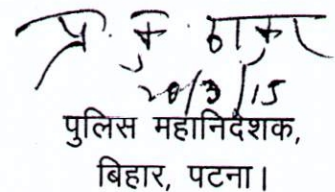 प्र. कु. ठाकुर
20/3/15
पुलिस महानिदेशक,
बिहार, पटना।